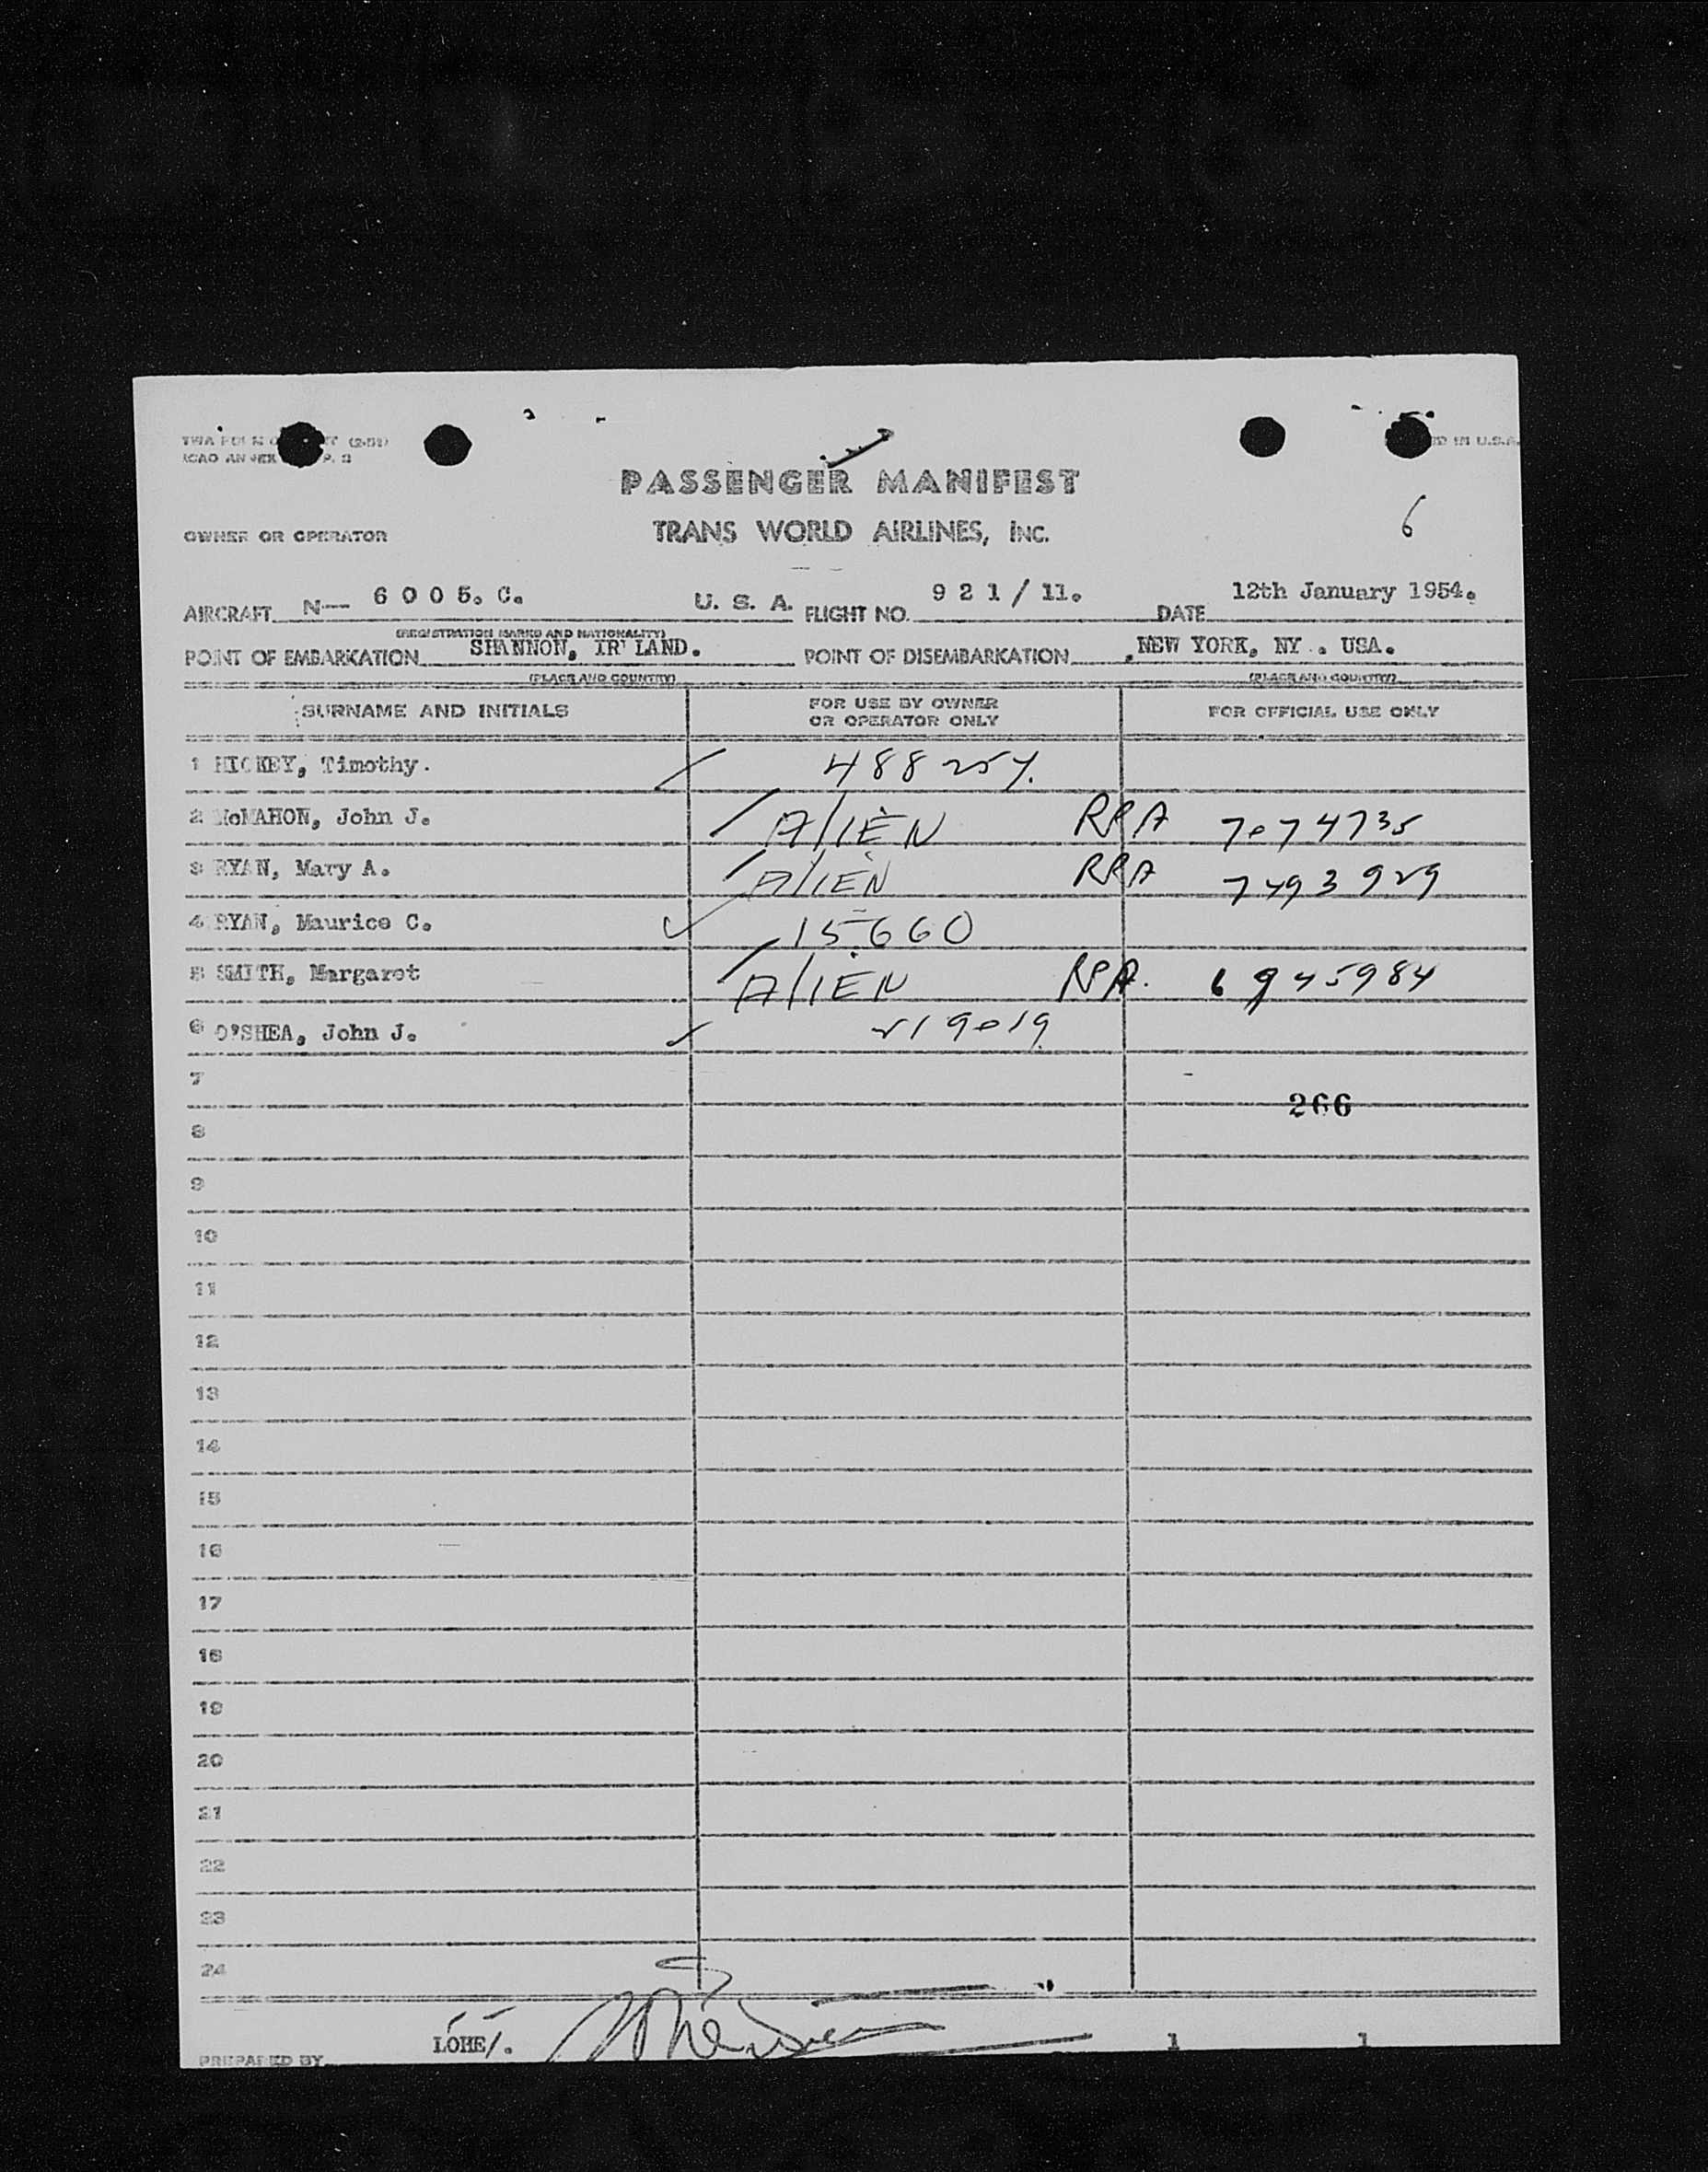 (2-51)
ICAO ANNEX P. 2
IN U.S.A.
PASSENGER MANIFEST
OWNER OR OPERATOR TRANS WORLD AIRLINES, INC. 6
AIRCRAFT N— 6 0 0 5. C. U. S. A. FLIGHT NO. 9 2 1 / 11. DATE 12th January 1954.
(REGISTRATION MARKS AND NATIONALITY)
POINT OF EMBARKATION SHANNON, IR LAND. POINT OF DISEMBARKATION NEW YORK, NY . USA.
(PLACE AND COUNTRY) (PLACE AND COUNTRY)
SURNAME AND INITIALS FOR USE BY OWNER OR OPERATOR ONLY FOR OFFICIAL USE ONLY
1 HICKEY, Timothy.
2 McMAHON, John J. ALIEN RPA 7074735
3 RYAN, Mary A. ALIEN RPA 7493929
4 RYAN, Maurice C. 15660
5 SMITH, Margaret ALIEN RPA. 6945984
6 O'SHEA, John J. 219019
7
266
8
9
10
11
12
13
14
15
16
17
18
19
20
21
22
23
24
PREPARED BY LOHE/. 1 1